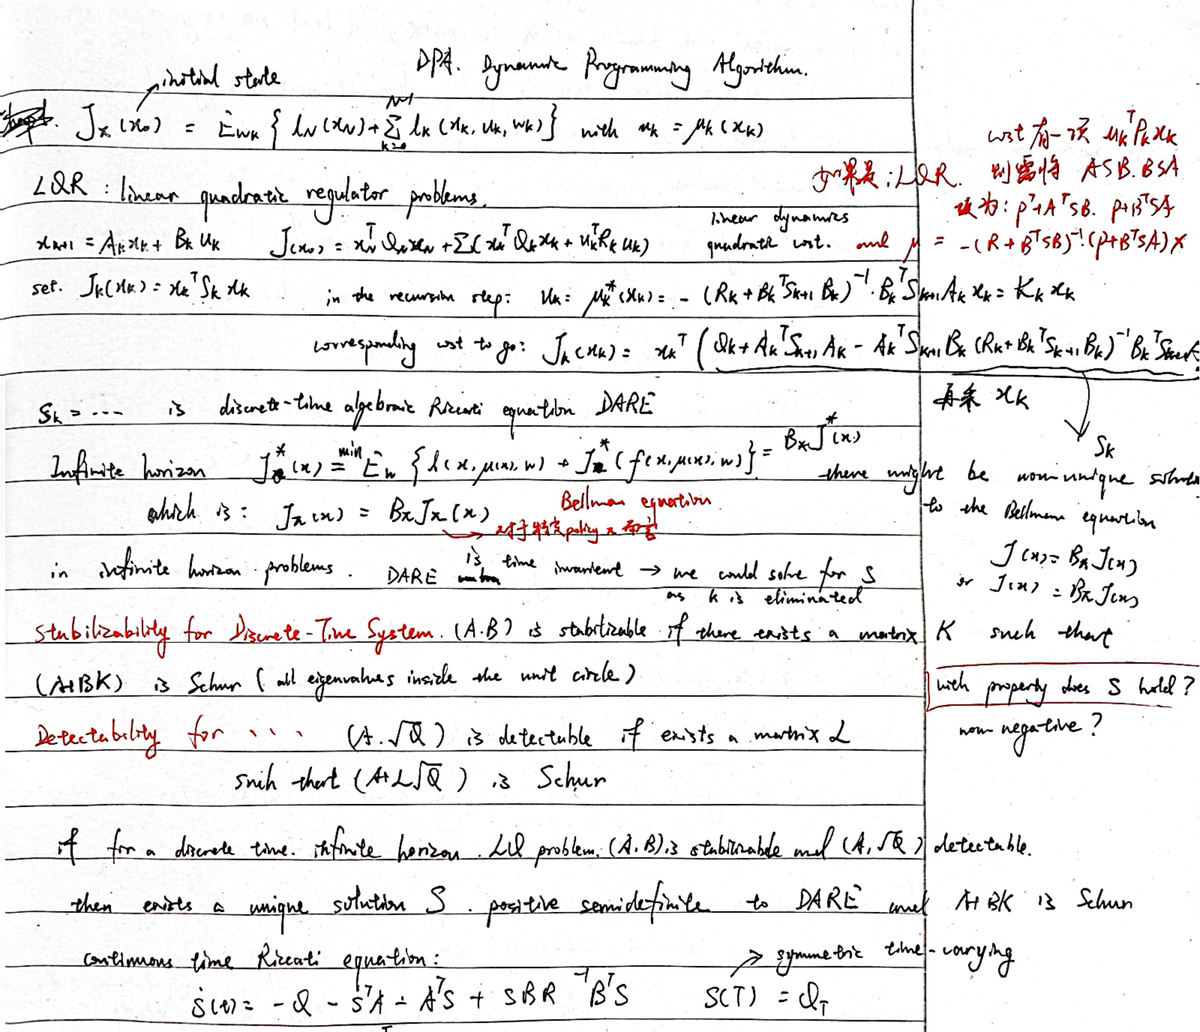 DPA. Dynamic Programming Algorithm.
initial state
J_π(x₀) = E_{wk} { l_N(x_N) + Σ_{k=0}^{N-1} l_k(x_k, u_k, w_k) } with u_k = μ_k(x_k)
cost 有一项 u_k^T P_k x_k
如果是:LQR. 则需将 ASB. BSA
改为: P^T+A^TSB. P+B^TSA
and μ = -(R+B^TSB)^{-1}(P+B^TSA)x
LQR : linear quadratic regulator problems.
x_{k+1} = A_k x_k + B_k u_k J(x₀) = x_N^T Q_N x_N + Σ(x_k^T Q_k x_k + u_k^T R_k u_k) linear dynamics
quadratic cost.
set. J_k(x_k) = x_k^T S_k x_k in the recursion step: u_k = μ_k^*(x_k) = -(R_k + B_k^T S_{k+1} B_k)^{-1}. B_k^T S_{k+1} A_k x_k = K_k x_k
corresponding cost to go: J_k(x_k) = x_k^T (Q_k + A_k^T S_{k+1} A_k - A_k^T S_{k+1} B_k (R_k + B_k^T S_{k+1} B_k)^{-1} B_k^T S_{k+1}
再乘 x_k
S_k
S_k = ... is discrete-time algebraic Riccati equation DARE
Infinite horizon J^*(x) = min E_w { l(x, μ(x), w) + J^*(f(x, μ(x), w) } = B_* J^*(x)
there might be nonunique solution
to the Bellman equation
J(x) = B_π J(x)
or J(x) = B_* J(x)
which is: J_π(x) = B_π J_π(x) Bellman equation
→ 对于特定policy π 而言
in infinite horizon problems. DARE is time invarient → we could solve for S
as k is eliminated
Stabilizability for Discrete-Time System. (A.B) is stabilizable if there exists a matrix K such that
(A+BK) is Schur (all eigenvalues inside the unit circle)
with property does S hold?
non negative?
Detectability for ... (A.√Q) is detectable if exists a matrix L
such that (A+L√Q) is Schur
if for a discrete time. infinite horizon. LQ problem. (A.B) is stabilizable and (A,√Q) detectable.
then exists a unique solution S. positive semidefinite to DARE and A+BK is Schur
continuous time Riccati equation: → symmetric time-varying
Ṡ(t) = -Q - S^TA - A^TS + SBR^{-1}B^TS S(T) = Q_T